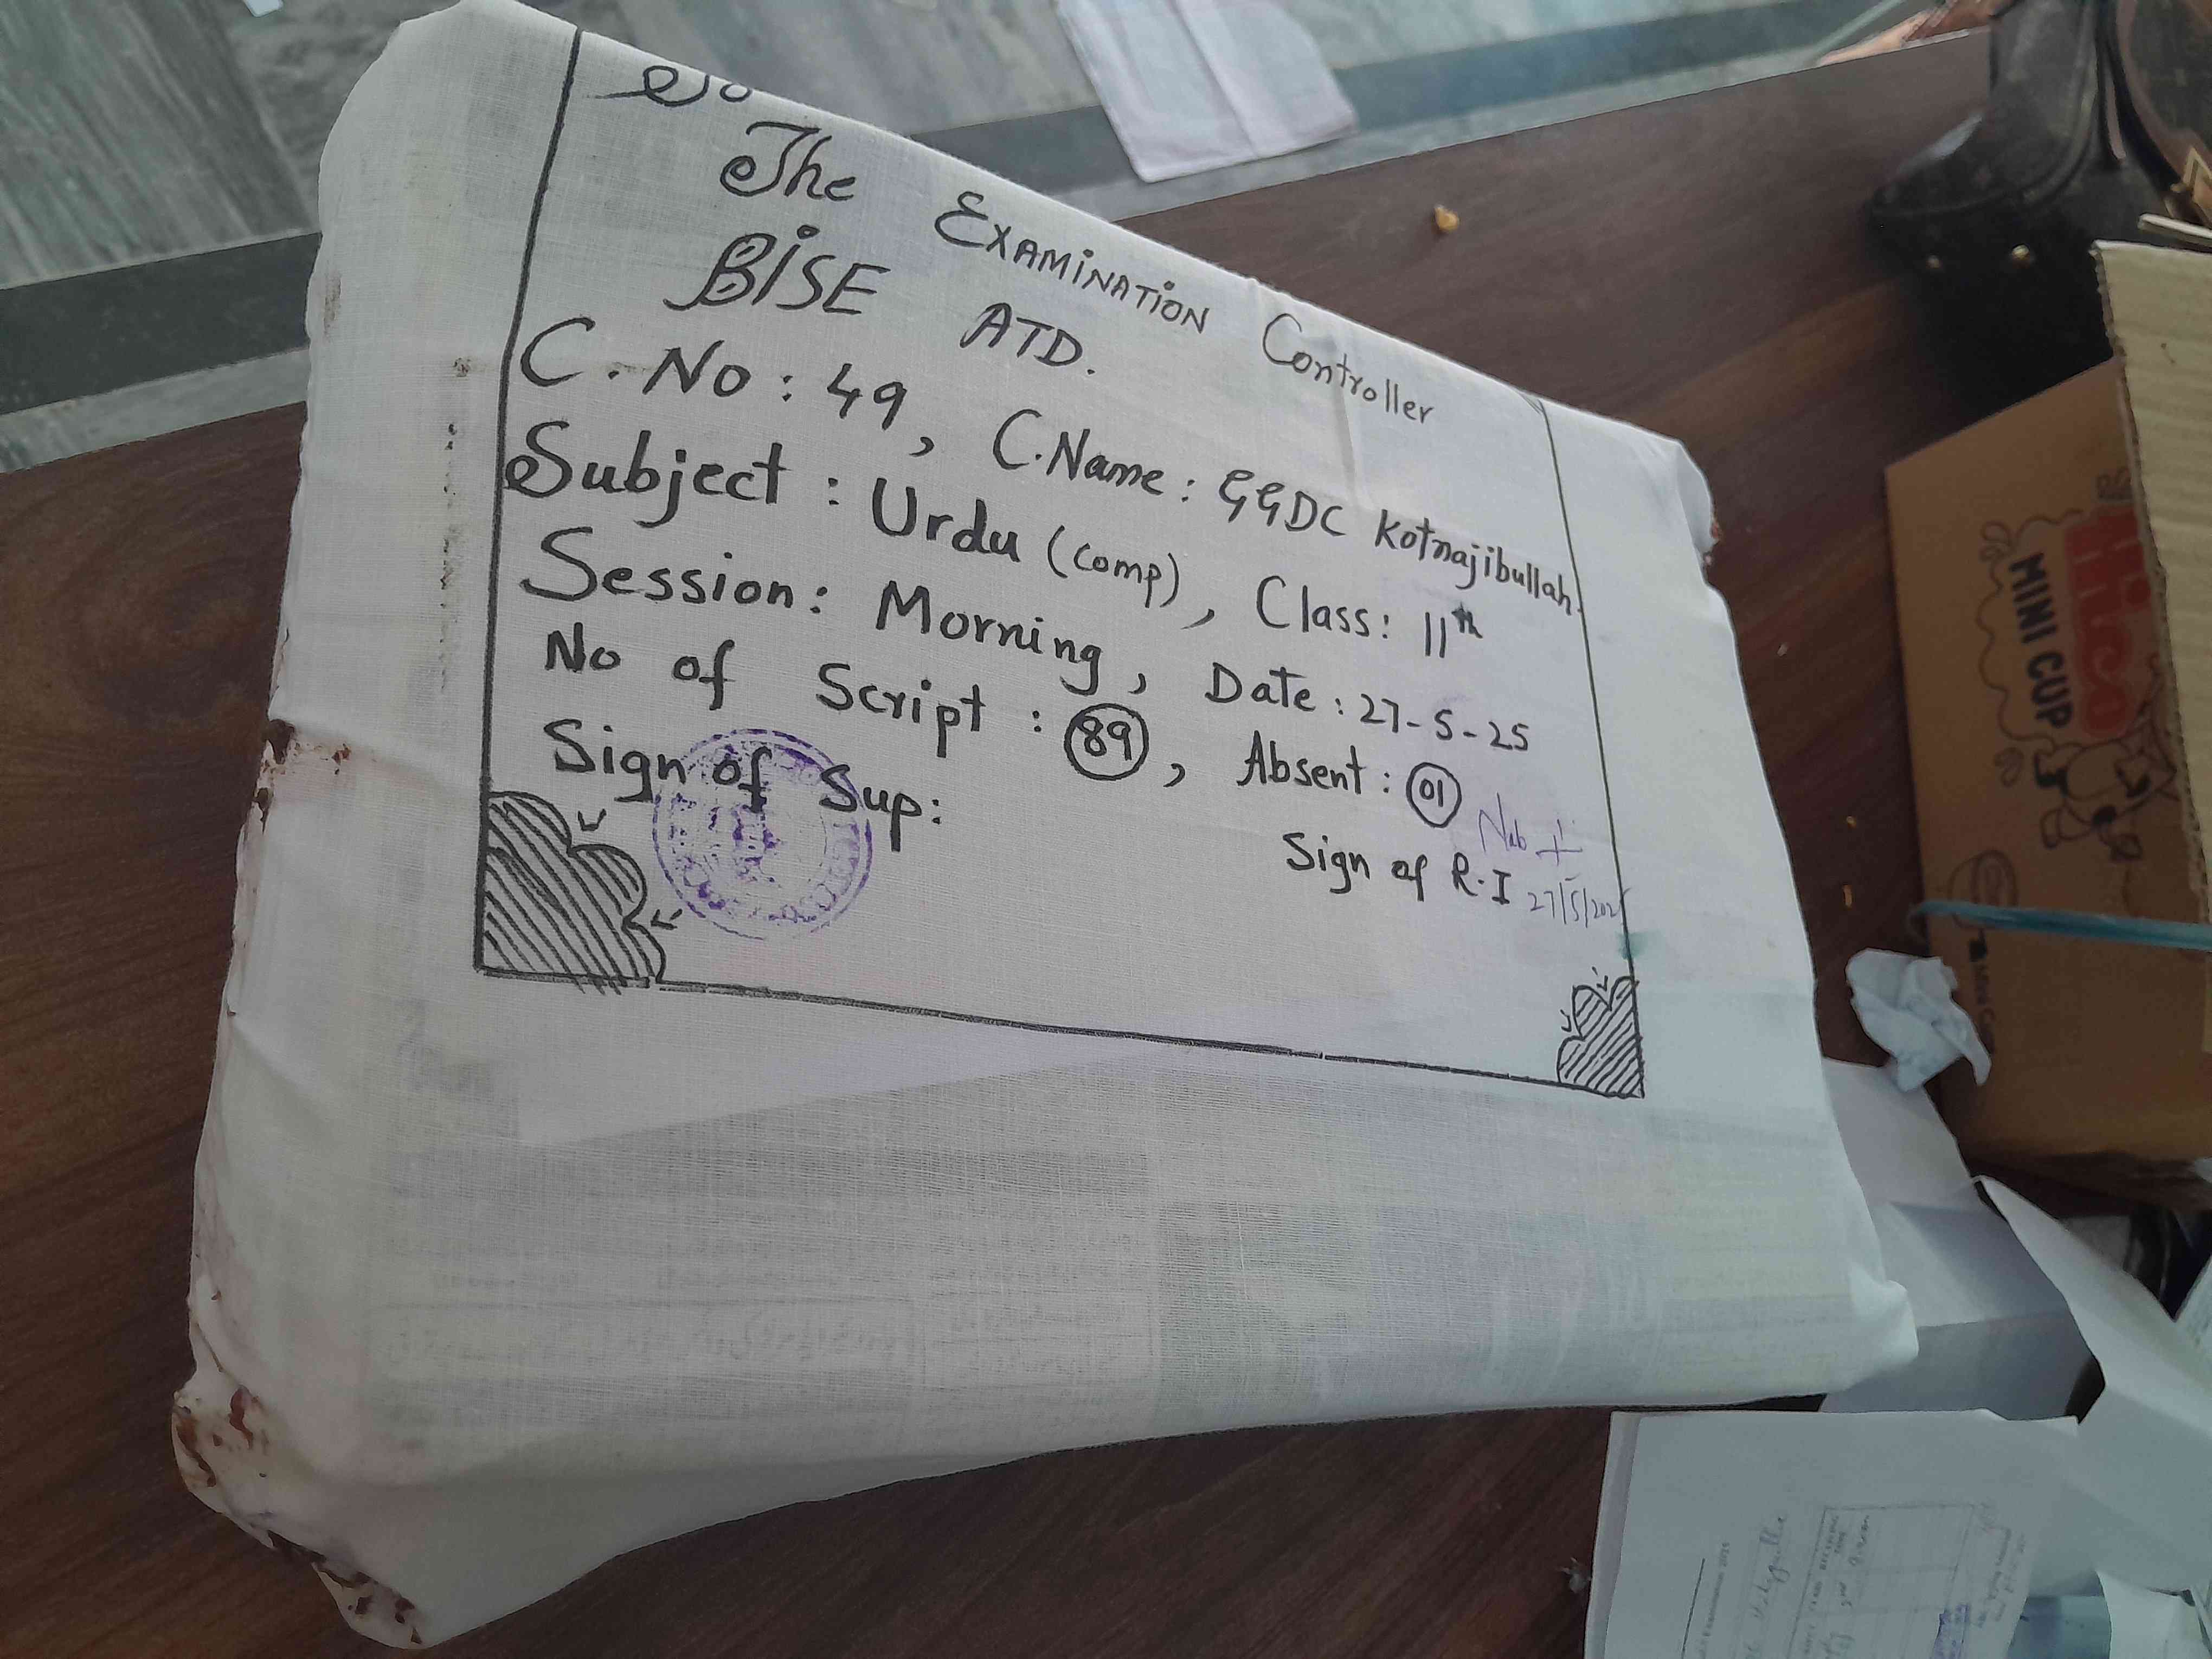 To
The Examination Controller
BISE ATD.
C. No : 49, C.Name : GGDC Kotnajibullah.
Subject : Urdu (comp), Class: 11th
Session: Morning, Date : 27-5-25
No of Script : 89, Absent : 01
Sign of Sup:
Sign of R.I 27/5/202
Hico
MINI CUP